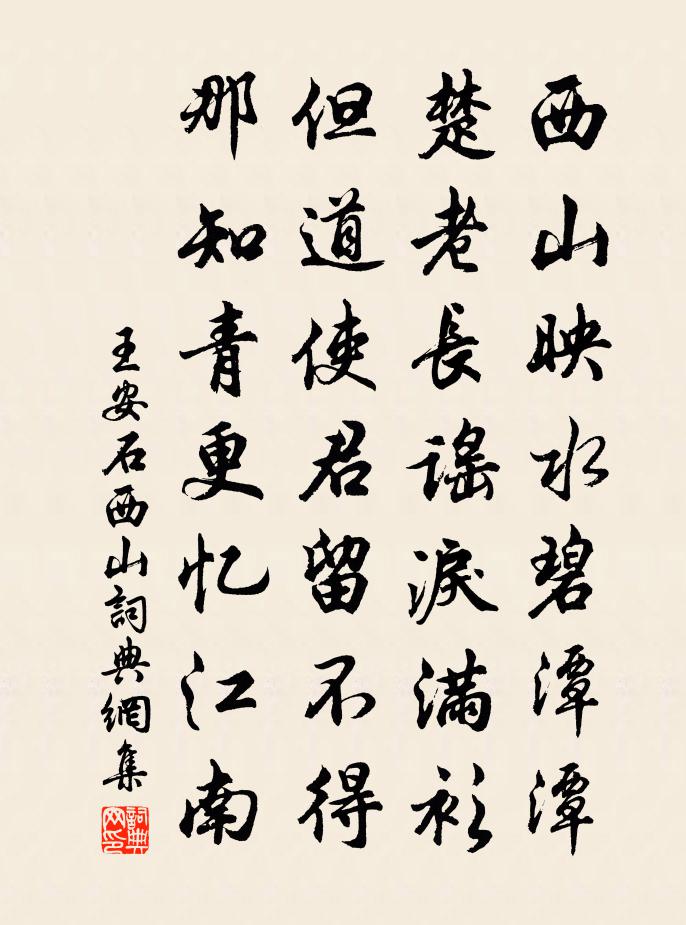 西山映水碧潭潭
楚老長謡淚滿衫
但道使君留不得
那知青更忆江南
王安石西山詞典網集
詞典网印